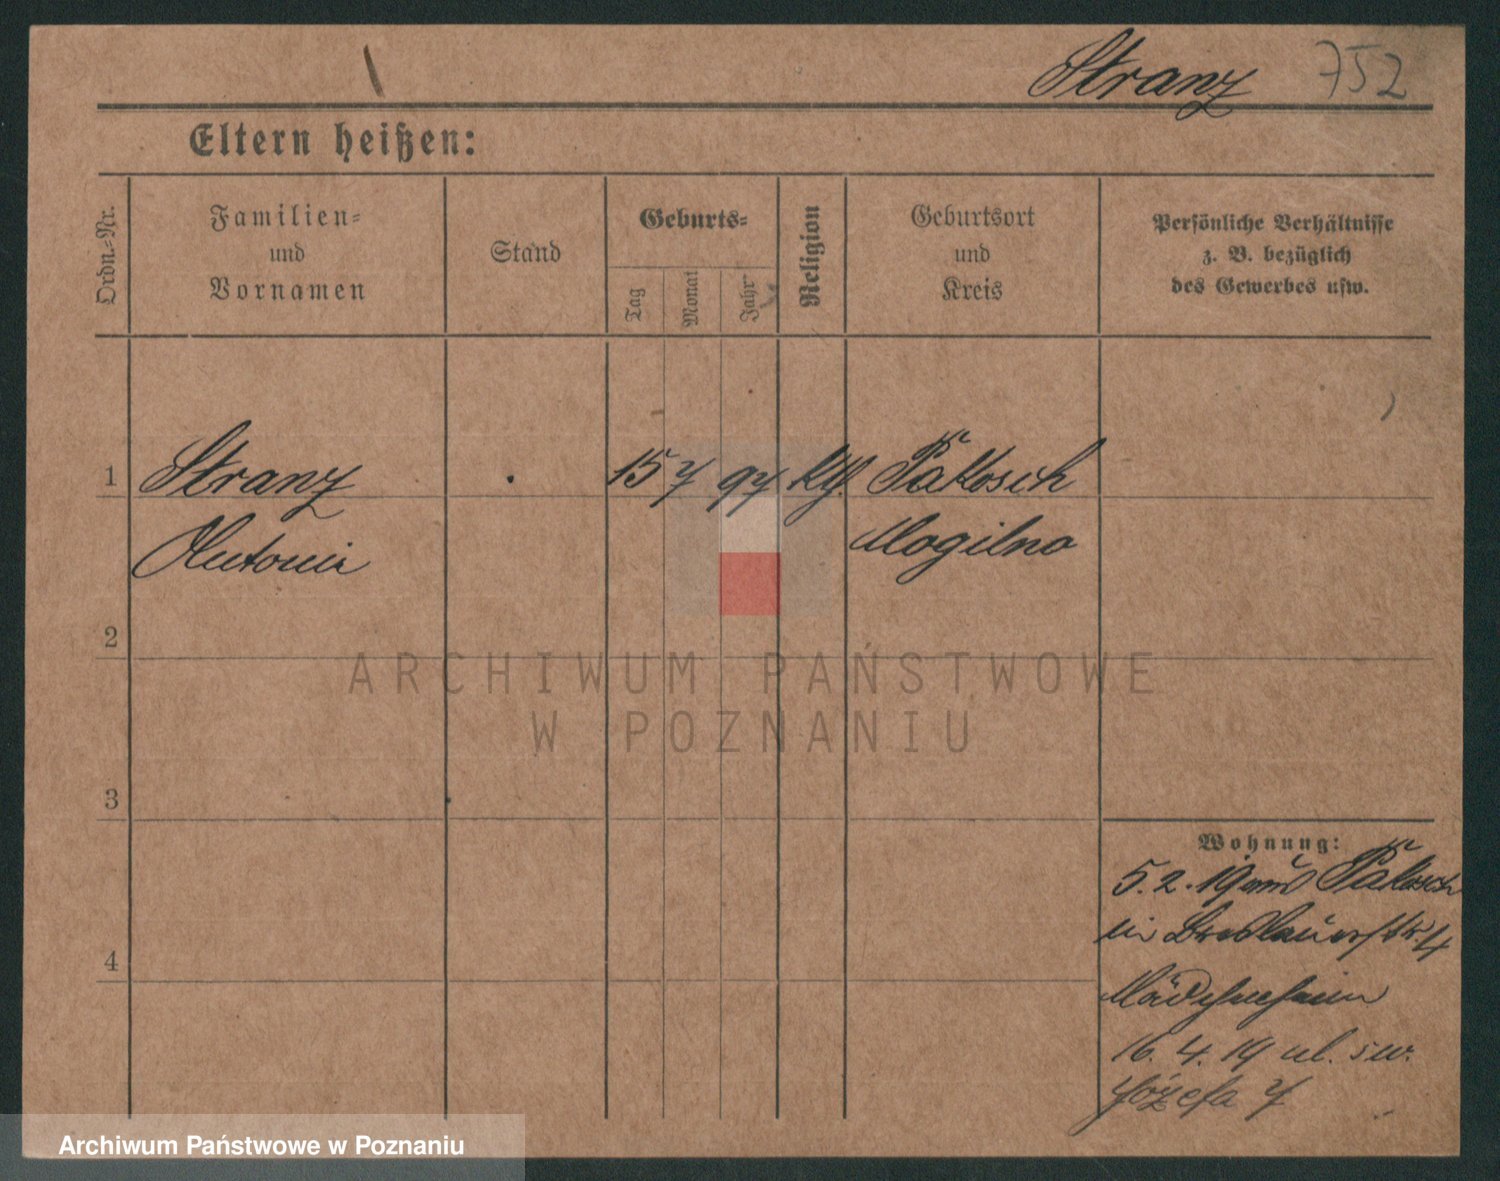 Stranz 752
Eltern heißen:
Ordn.-Nr.
Familien-
und
Vornamen
Stand
Geburts-
Tag
Monat
Jahr
Religion
Geburtsort
und
Kreis
Persönliche Verhältnisse
z. B. bezüglich
des Gewerbes usw.
1 Stranz 15 7 97 kth. Pakosch
Antonie Mogilno
2
3
4
ARCHIWUM PAŃSTWOWE
W POZNANIU
Wohnung:
5.2.19 aus Pakosch
in Breslauerstr. 4
Mädchenheim
16. 4. 19 ul. św.
Józefa 7
Archiwum Państwowe w Poznaniu